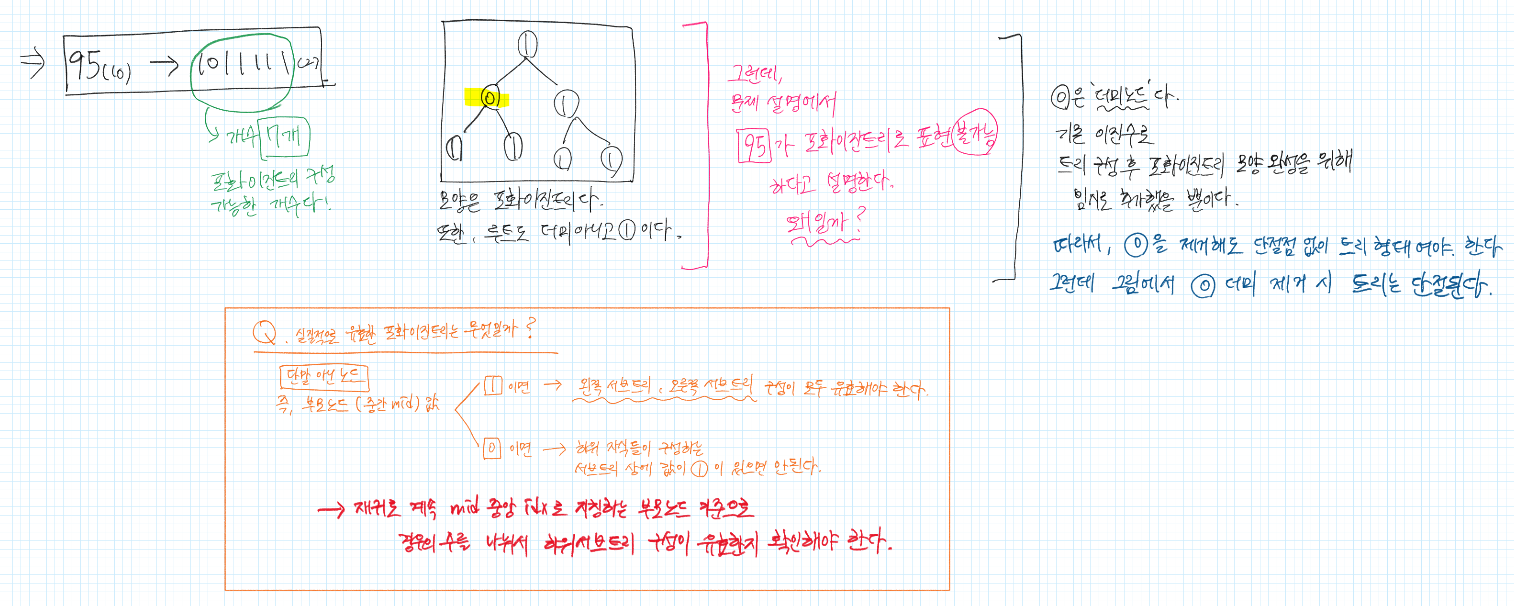 ⇒ 95(10) → 1011111(2)
↳ 개수 7개
포화이진트리 구성
가능한 개수다!
1
0 1
1 1 1 1
모양은 포화이진트리다.
또한, 루트도 더미아니고 ①이다.
그런데,
문제 설명에서
95가 포화이진트리로 표현 불가능
하다고 설명한다.
왜일까?
⓪은 '더미노드'다.
기존 이진수로
트리 구성 후 포화이진트리 모양 완성을 위해
임시로 추가했을 뿐이다.
따라서, ⓪을 제거해도 단절점 없이 트리 형태여야 한다
그런데 그림에서 ⓪ 더미 제거 시 트리는 단절된다.
Q. 실질적으로 유효한 포화이진트리는 무엇일까?
단말 아닌 노드
즉, 부모노드(중간 mid) 값
1 이면 → 왼쪽 서브트리, 오른쪽 서브트리 구성이 모두 유효해야 한다.
0 이면 → 하위 자식들이 구성하는
서브트리 상에 값이 ①이 있으면 안된다.
→ 재귀로 계속 mid 중앙 idx로 지칭하는 부모노드 기준으로
경우의 수를 나눠서 하위서브트리 구성이 유효한지 확인해야 한다.